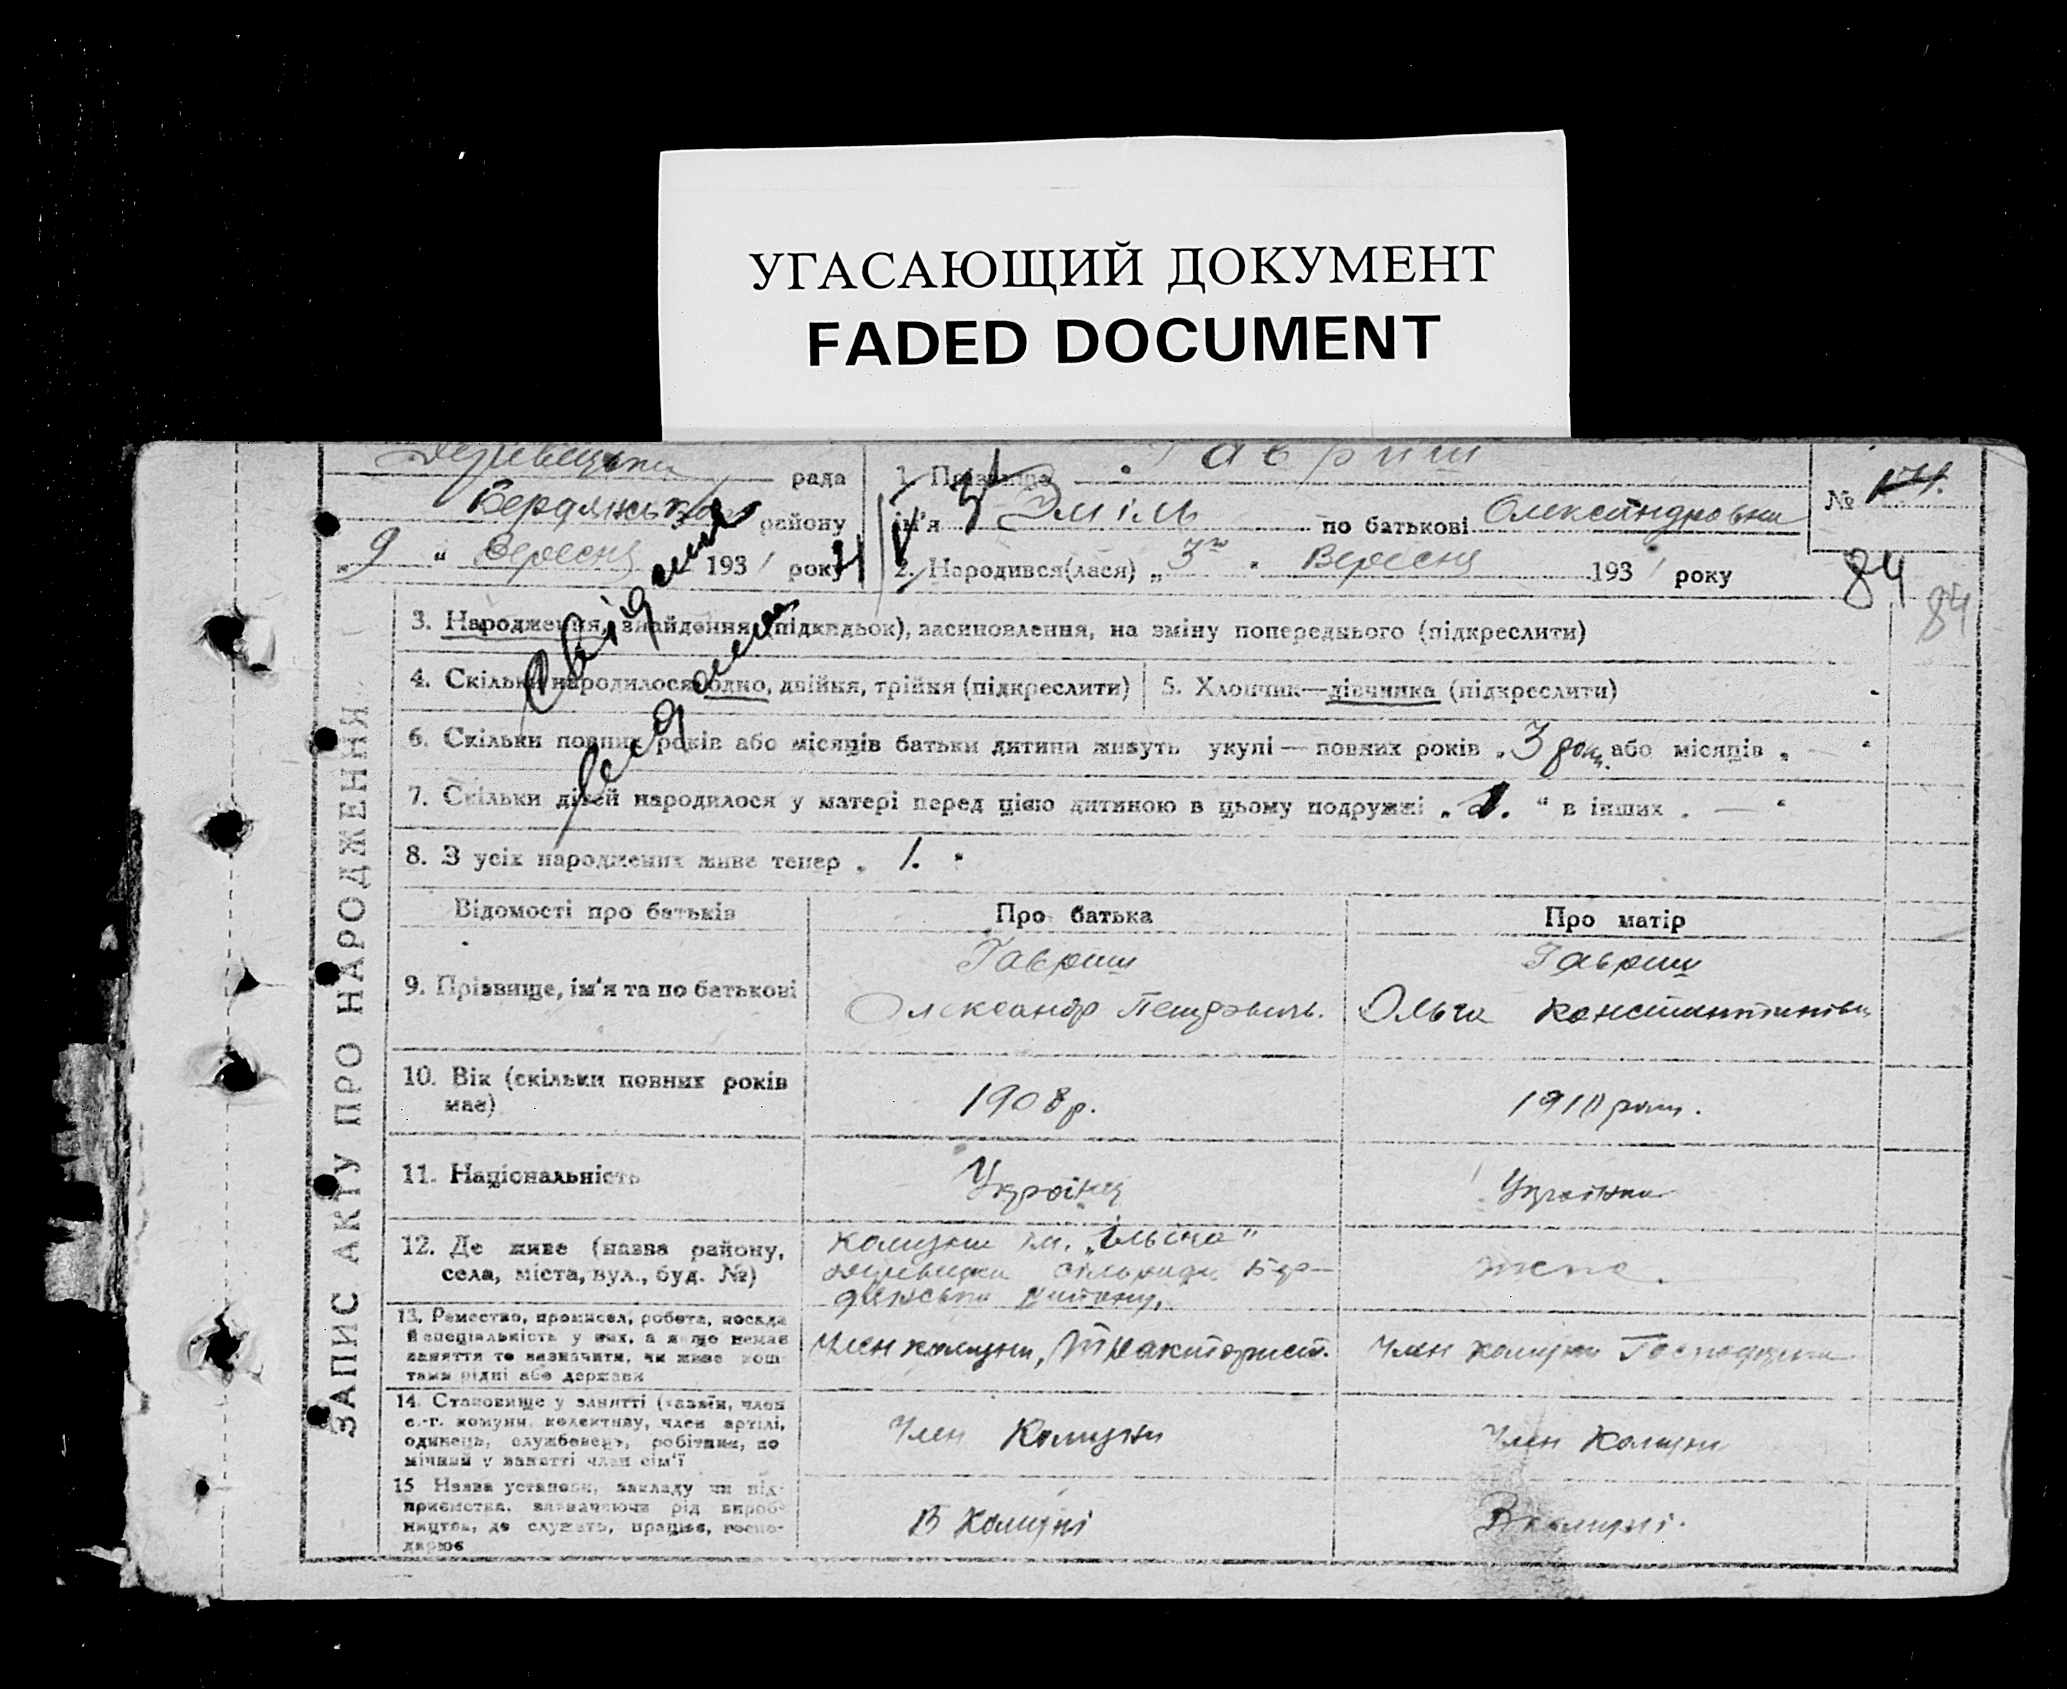 УГАСАЮЩИЙ ДОКУМЕНТ
FADED DOCUMENT
рада
району
„9 “ Вересня 1931 року
1. Прізвище Гавриш
ім'я Эміль по батькові Олександровна
2. Народився(лася) „3го “ Вересня 1931 року
№ 174.
84
84
ЗАПИС АКТУ ПРО НАРОДЖЕННЯ
3. Народження, знайдення (підкидьок), засиновлення, на зміну попереднього (підкреслити)
4. Скільки народилося: одно, двійня, трійня (підкреслити)
5. Хлопчик—дівчинка (підкреслити)
6. Скільки повних років або місяців батьки дитини живуть укупі — повних років „3 роки або місяців „ — “
7. Скільки дітей народилося у матері перед цією дитиною в цьому подружжі „1. “ в інших „ — “
8. З усіх народжених живе тепер „ 1. “
Відомості про батьків
Про батька
Про матір
9. Прізвище, ім'я та по батькові
Гавриш
Олександр Петрович.
Гавриш
Ольга Константинівн
10. Вік (скільки повних років має)
1908 р.
1910 року.
11. Національність
Українец
Українка
12. Де живе (назва району,
села, міста, вул., буд. №)
Комуни ім. „Ільіча“
сільради Бер-
дянськи району,
теж.
13. Ремество, промисел, робота, посада
й спеціяльність у них, а якщо немає
заняття то визначити, чи живе кош-
тами рідні або держави
Член комуни, Тракторист.
Член комуни
14. Становище у занятті (хазяїн, член
с.-г. комуни, колективу, член артілі,
одинець, службовець, робітник, по
мічний у занятті член сім'ї
Член Комуни
Член Комуни
15 Назва установи, закладу чи під-
приємства, зазначаючи рід вироб-
ництва, де служить, працює, госпо-
дарює
В Комуні
В комуні.